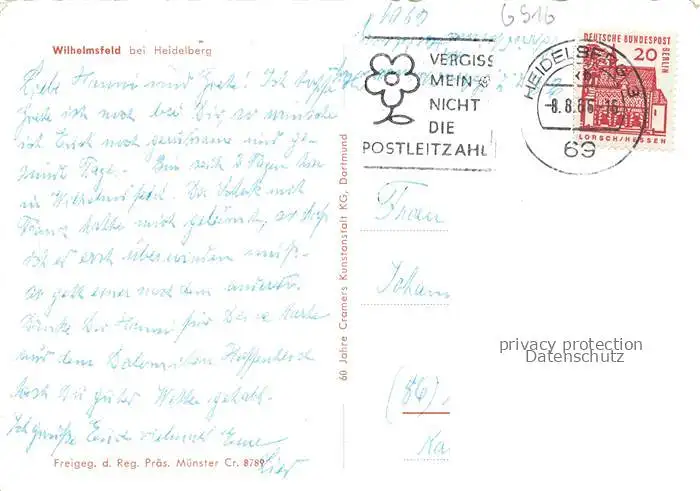 6916
Wilhelmsfeld bei Heidelberg
Liebe Hanni und Grete! Ich
Grete ist noch bei Dir so wünsche
ich Euch noch geruhsame und ge-
sunde Tage. Bin seit 3 Tagen hier
in Wilhelmsfeld. Der Schock mit
hatte mich gelähmt, so daß
ich es erst überwinden muß.
so geht einer nach dem anderen.
Danke Dir Hanni für Deine Karte
aus dem Dolomiten Hoffentlich
hast Du guter Wetter gehabt.
Ich grüße Euch vielmals Eure
Freigeg. d. Reg. Präs. Münster Cr. 8789
60 Jahre Cramers Kunstanstalt KG, Dortmund
VERGISS
MEIN
NICHT
DIE
POSTLEITZAHL
HEIDELBERG 3
-8.8.66-16
69
DEUTSCHE BUNDESPOST
BERLIN
20
LORSCH/HESSEN
Frau
Johann
privacy protection
Datenschutz
(86)
Ka